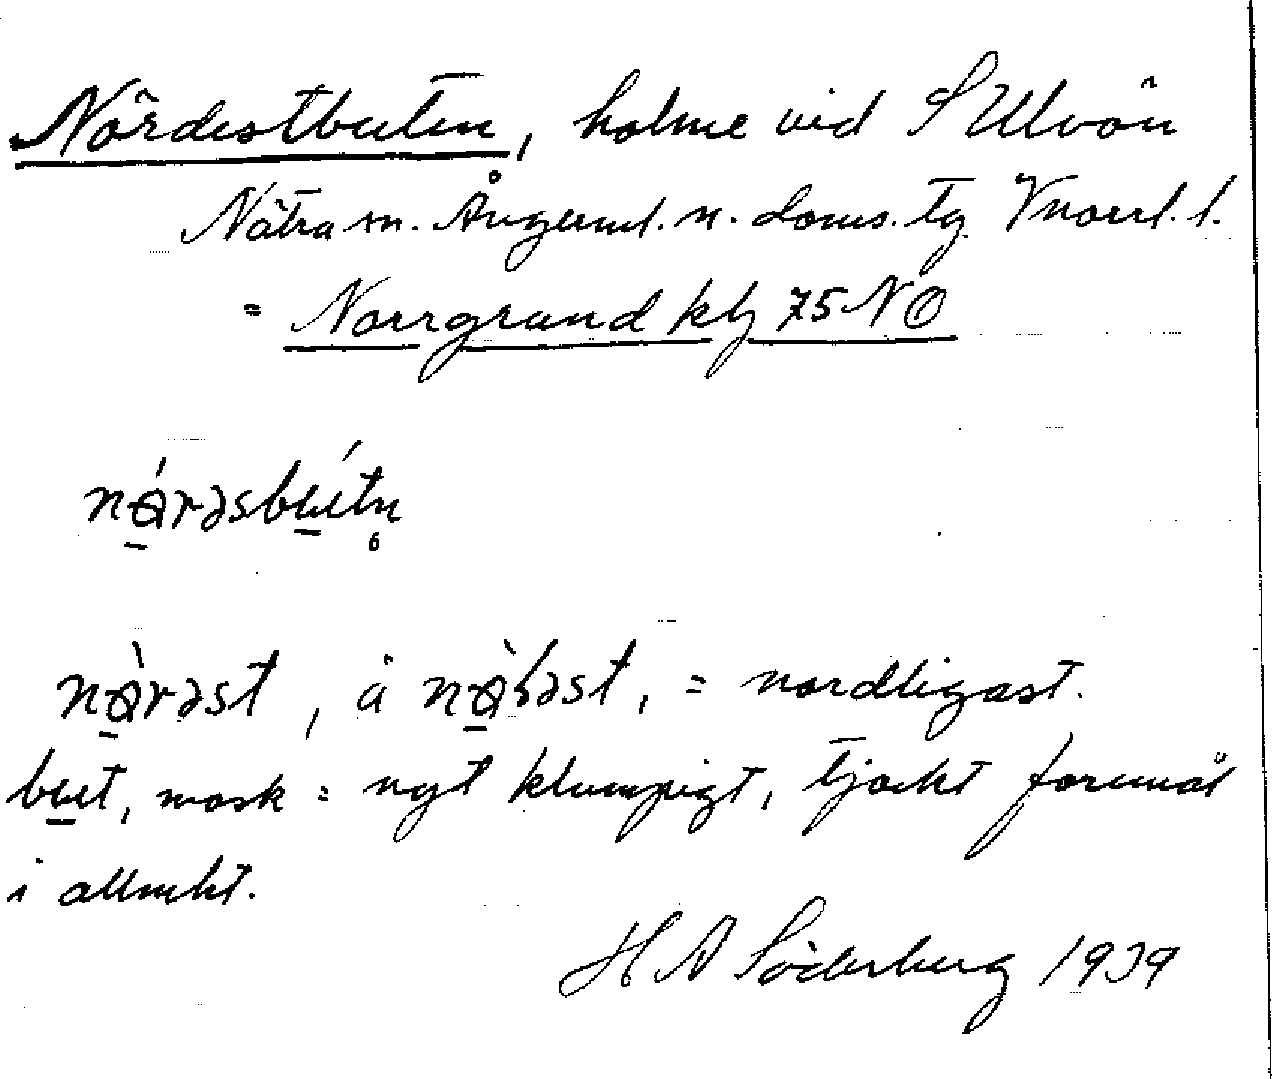 Nördestbuten, holme vid S Ulvön
Nätra sn. Ångerml. n. doms. tg Vnorrl. l.
= Norrgrund kbl 75 NO
nɵ́rəsbʉ́tn̥
nɵ̀rəst, ä nɵ̀ɓəst, = nordligast.
bʉt, mask = ngt klumpigt, tjockt föremål
i allmht.
H A Söderberg 1939